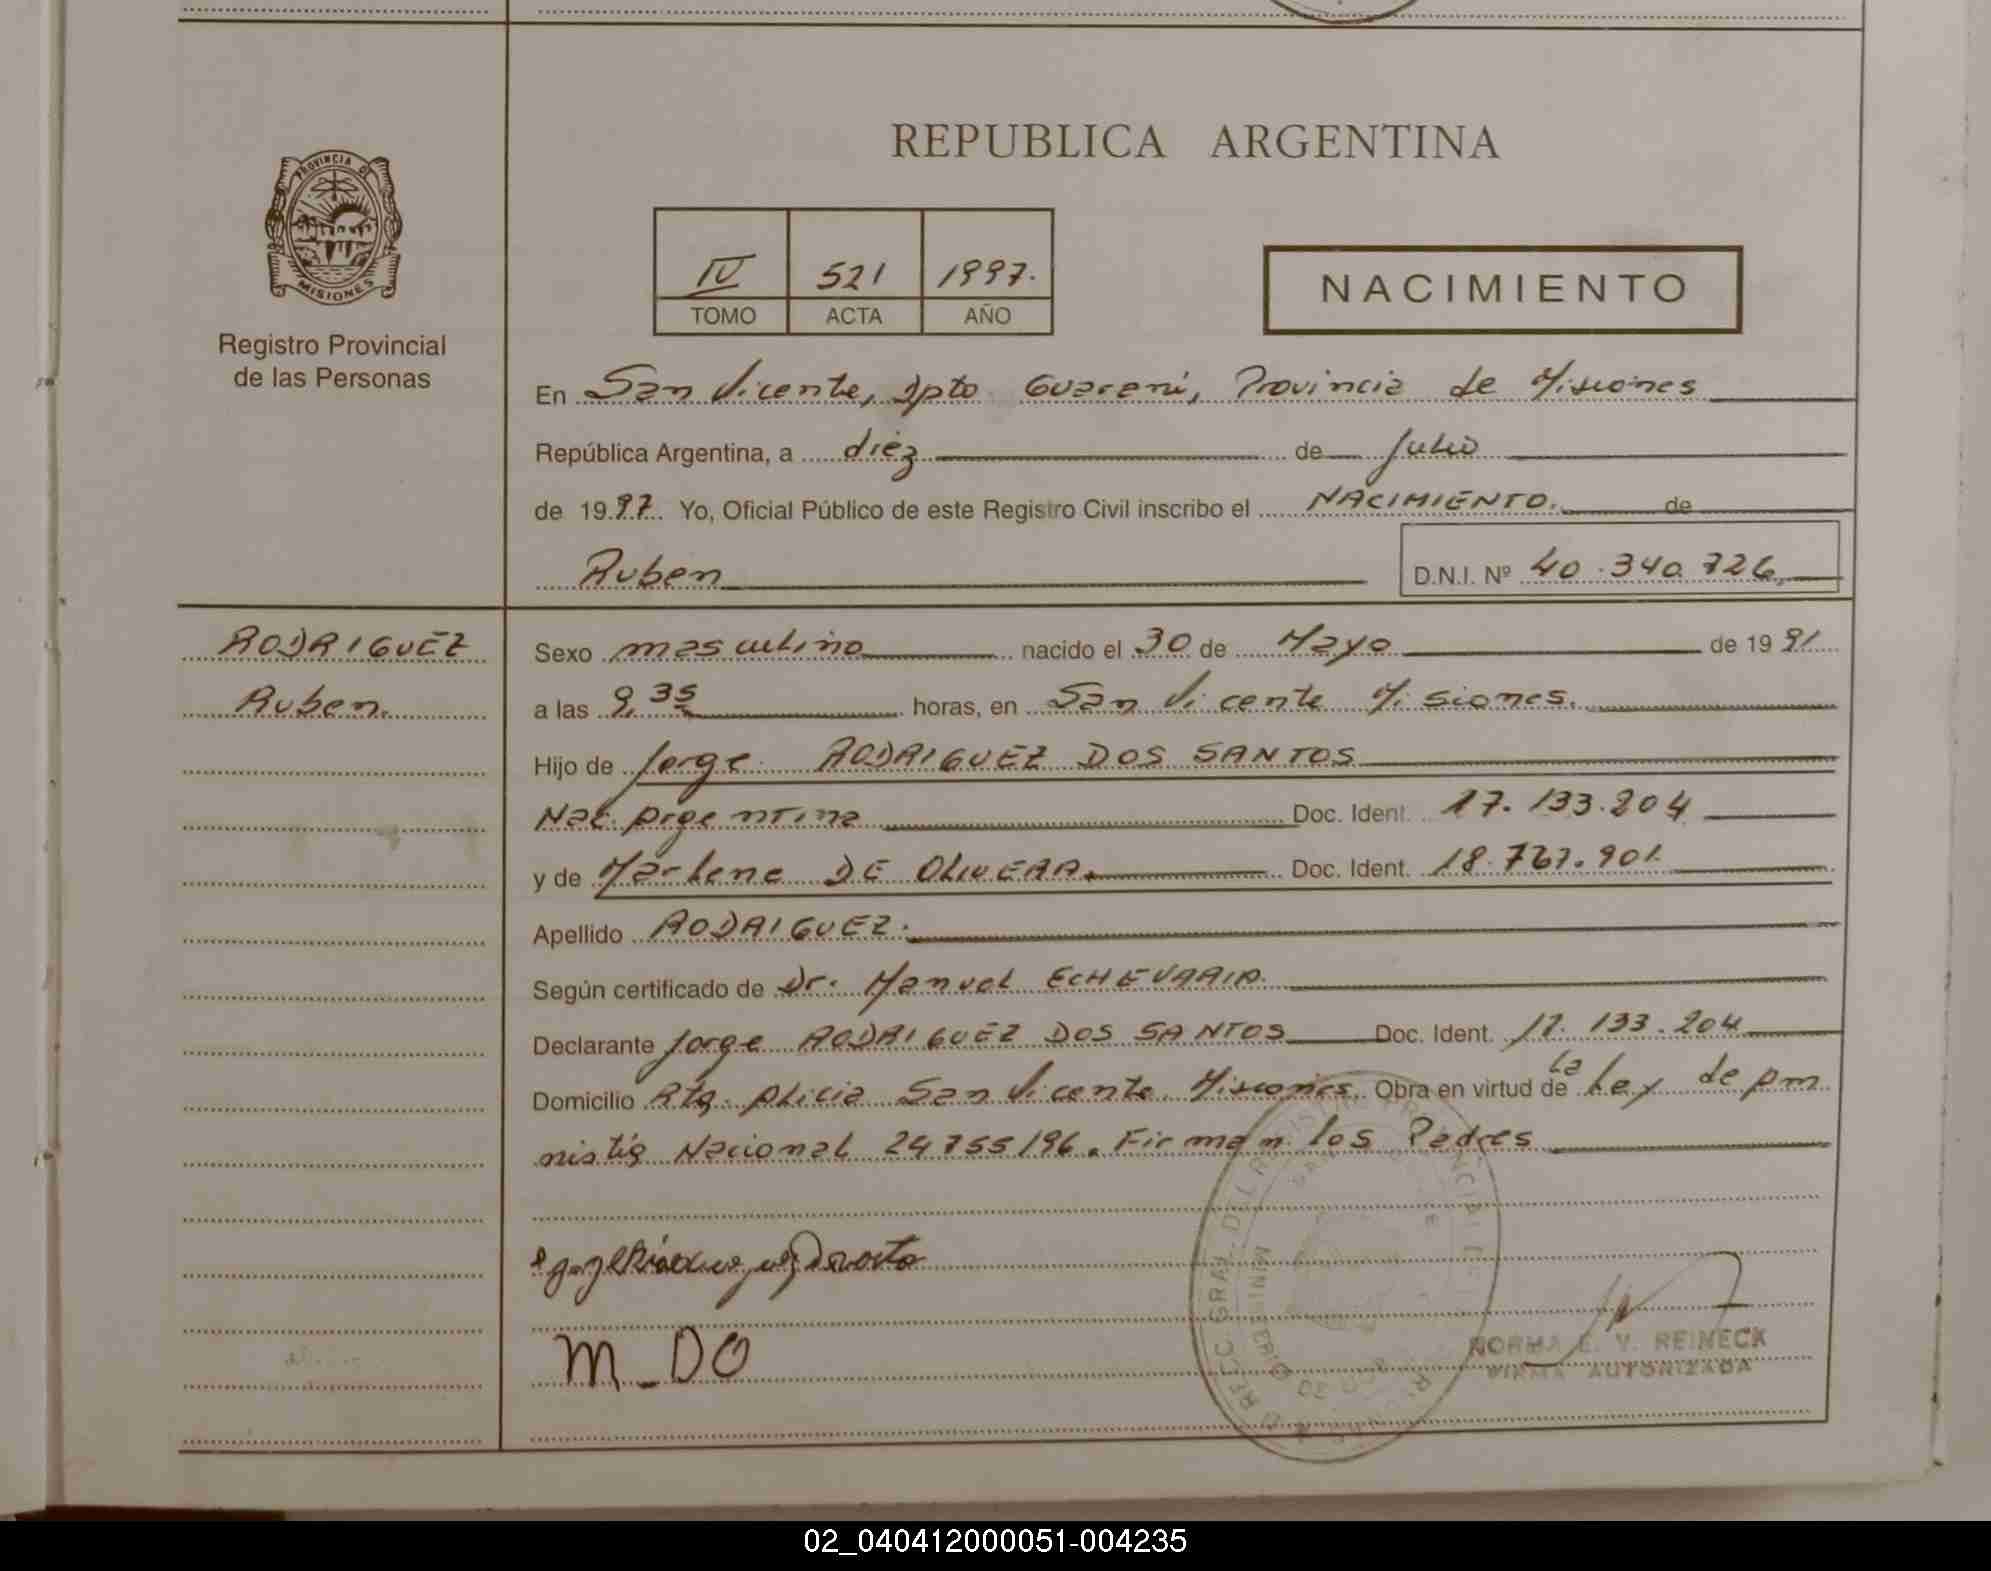 PROVINCIA DE
MISIONES
Registro Provincial
de las Personas
REPUBLICA ARGENTINA
IV 521 1997.
TOMO ACTA AÑO
NACIMIENTO
En San Vicente, Dpto Guarani, Provincia de Misiones
República Argentina, a diez de Julio
de 1997. Yo, Oficial Público de este Registro Civil inscribo el NACIMIENTO. de
Ruben D.N.I. Nº 40.340.726.
RODRIGUEZ
Ruben.
Sexo masculino nacido el 30 de Mayo de 1991.
a las 9,35 horas, en San Vicente Misiones.
Hijo de Jorge RODRIGUEZ DOS SANTOS
Nac. Argentina Doc. Ident. 17.133.204
y de Marlene DE OLIVERA. Doc. Ident. 18.767.901.
Apellido RODRIGUEZ.
Según certificado de Dr. Manuel ECHEVARRIA.
Declarante Jorge RODRIGUEZ DOS SANTOS Doc. Ident. 17.133.204
Domicilio Rta. Alicia San Vicente Misiones. Obra en virtud de La Ley de Am
nistía Nacional 24755/96. Firman los Padres
M_DO
NORMA E. V. REINECK
FIRMA AUTORIZADA
02_040412000051-004235